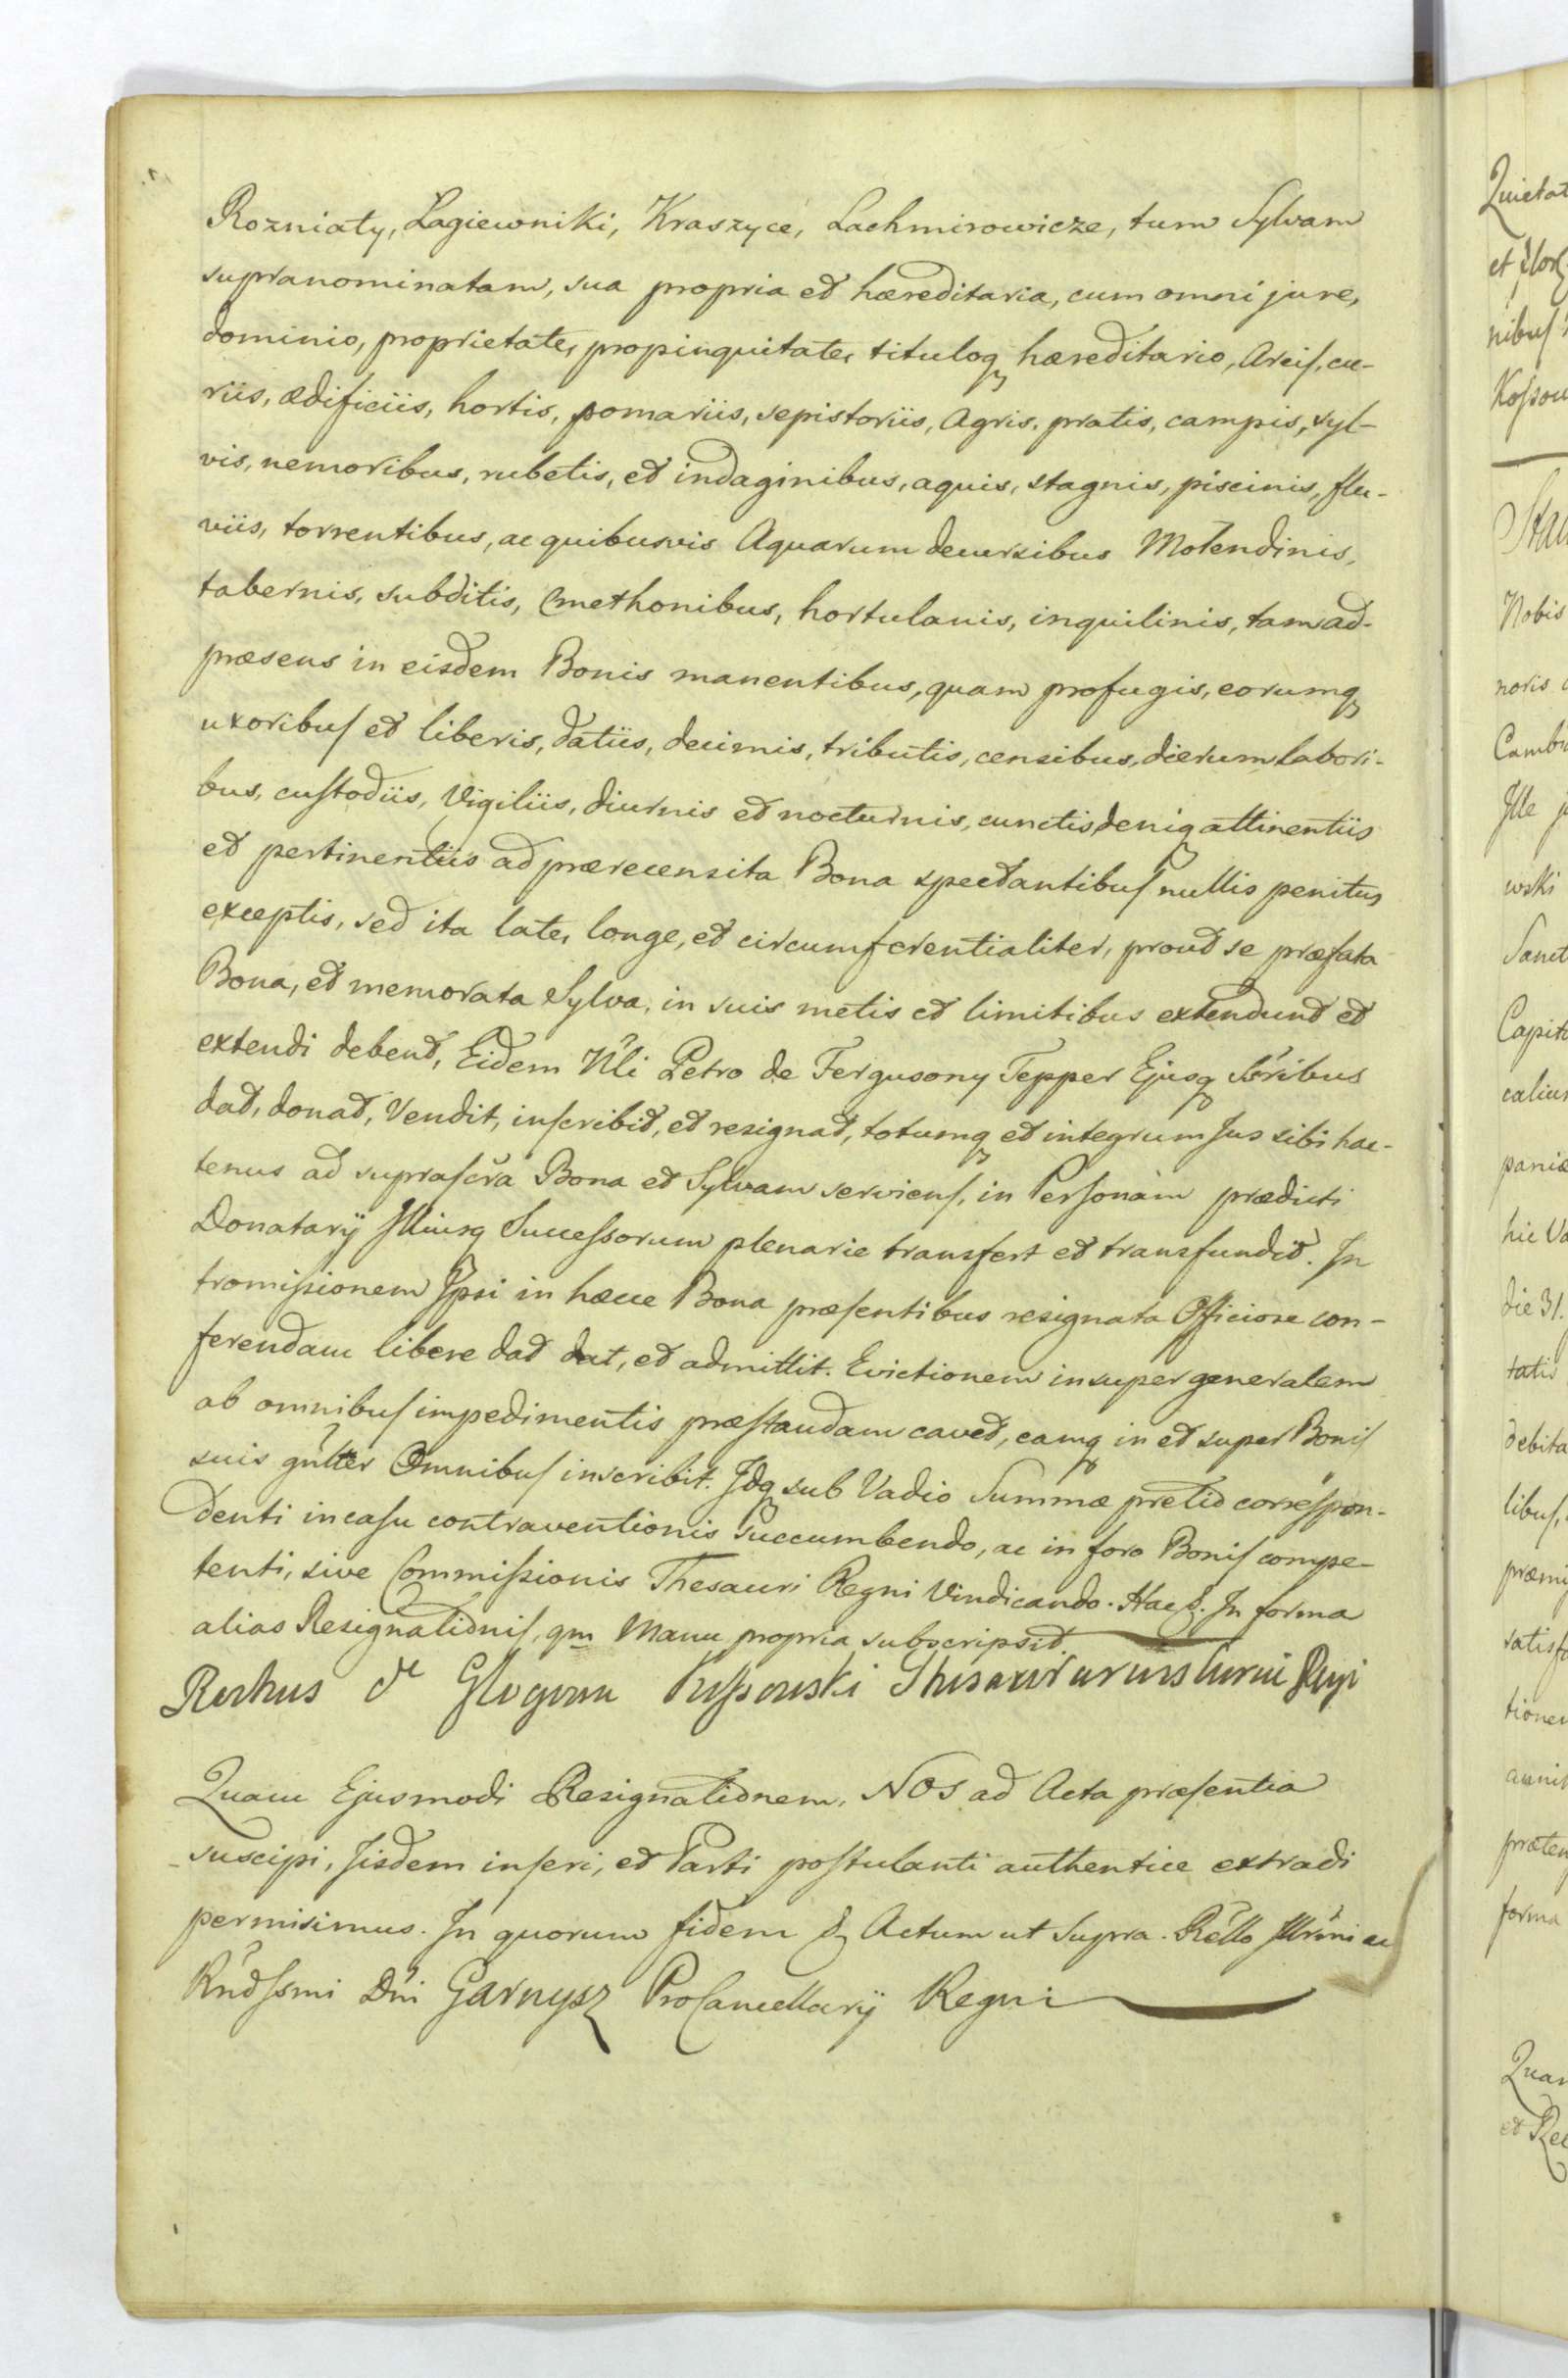 Rozniaty, Łagiewniki, Kraszyce, Lachmirowicze, tum Sylvam
supranominatam, sua propria et hæreditaria, cum omni jure,
dominio, proprietate, propinquitate, tituloq hæreditario, Areis, cu-
riis, ædificiis, hortis, pomariis, sepistoriis, Agris, pratis, campis, syl-
vis, nemoribus, rubetis, et indaginibus, aquis, stagnis, piscinis, flu-
viis, torrentibus, ac quibusvis Aquarum decursibus Molendinis,
tabernis, subditis, Cmethonibus, hortulanis, inquilinis, tam ad-
præsens in eisdem Bonis manentibus, quam profugis, eorumq
uxoribus et liberis, datiis, decimis, tributis, censibus, dierum labori-
bus, custodiis, Vigiliis, diurnis et nocturnis, cunctis deniq attinentiis
et pertinentiis ad prærecensita Bona spectantibus nullis penitus
exceptis, sed ita late, longe, et circumferentialiter, prout se præfata
Bona, et memorata Sylva, in suis metis et limitibus extendunt et
extendi debent, Eidem Nli Petro de Fergusony Tepper Ejusq Sŕribus
dat, donat, Vendit, inscribit, et resignat, totumq et integrum Jus sibi hac-
tenus ad suprascra Bona et Sylvam serviens, in Personam prædicti
Donatarÿ Illiusq Successorum plenarie transfert et transfundit. In
tromissionem Ipsi in hæcce Bona præsentibus resignata Officiose con-
ferendam libere dat dat, et admittit. Evictionem insuper generalem
ab omnibus impedimentis præstandam cavet, eamq in et super Bonis
suis gnlter Omnibus inscribit. Idq sub Vadio Summæ pretio correspon-
denti in casu contraventionis succumbendo, ac in foro Bonis compe-
tenti, sive Commissionis Thesauri Regni Vindicando. Hac &. In forma
alias Resignationis, qm Manu propria subscripsit.
Rochus de Glogowa Kossowski Thesaurarius Curiæ Regni
Quam Ejusmodi Resignationem, NOS ad Acta præsentia
suscipi, Iisdem inseri, et Parti postulanti authentice extradi
permisimus. In quorum fidem & Actum ut Supra. Rello Illrimi ac
Rndssmi Dni Garnysz ProCancellarÿ Regni
Quietat
et
nibus
Kossow
Nobis
noris
Ille
wski
Sanct
Capit
calium
paniæ
hic Va
die 31.
tatis
debita
libus,
satisfa
tionem
forma
Quam
et Rec